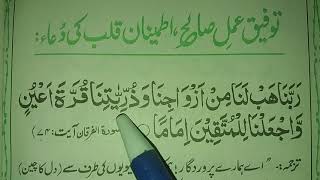 توفیق عمل صالح، اطمینان قلب کی دُعاء:
رَبَّنَا هَبْ لَنَا مِنْ اَزْوَاجِنَا وَذُرِّيّٰتِنَا قُرَّةَ اَعْيُنٍ
وَّاجْعَلْنَا لِلْمُتَّقِيْنَ اِمَامًا (سورة الفرقان آیت: ۷۴)
ترجمہ: "اے ہمارے پروردگار! ہمیں بیویوں کی طرف سے (دل کا چین)